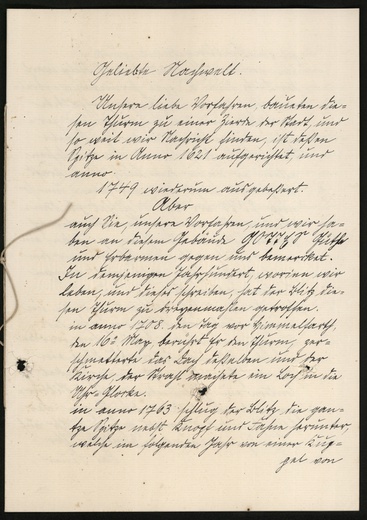 Geliebte Nachwelt.
Unsere liebe Vorfahren, baueten die-
sen Thurm zu einer Zierde der Stadt, und
so weit wir Nachricht finden, ist deßen
Spitze in Anno 1621 aufgerichtet, und
anno
1749 wiederum ausgebeßert.
Aber
auch Sie, unsere Vorfahren, und wir ha-
ben an diesem Gebäude GOTTES Güthe
und Erbarmen gegen uns bemerket.
In demjenigen Jahrhundert, worinn wir
leben, und dieses schreiben, hat der Blitz die-
sen Thurm zu dreyenmahlen getroffen.
in anno 1708. den Tag vor Himmelfarth,
den 16ᵗ May berührt Er den Thurm, zer-
schmetterte das Dach desselben und der
Kirche, der Strahl machete ein Loch in die
Uhr-Glocke.
in anno 1763 schlug der Blitz die gan-
tze Spitze nebst Knopf und Fahne herunter,
welche im folgenden Jahr von einer
von